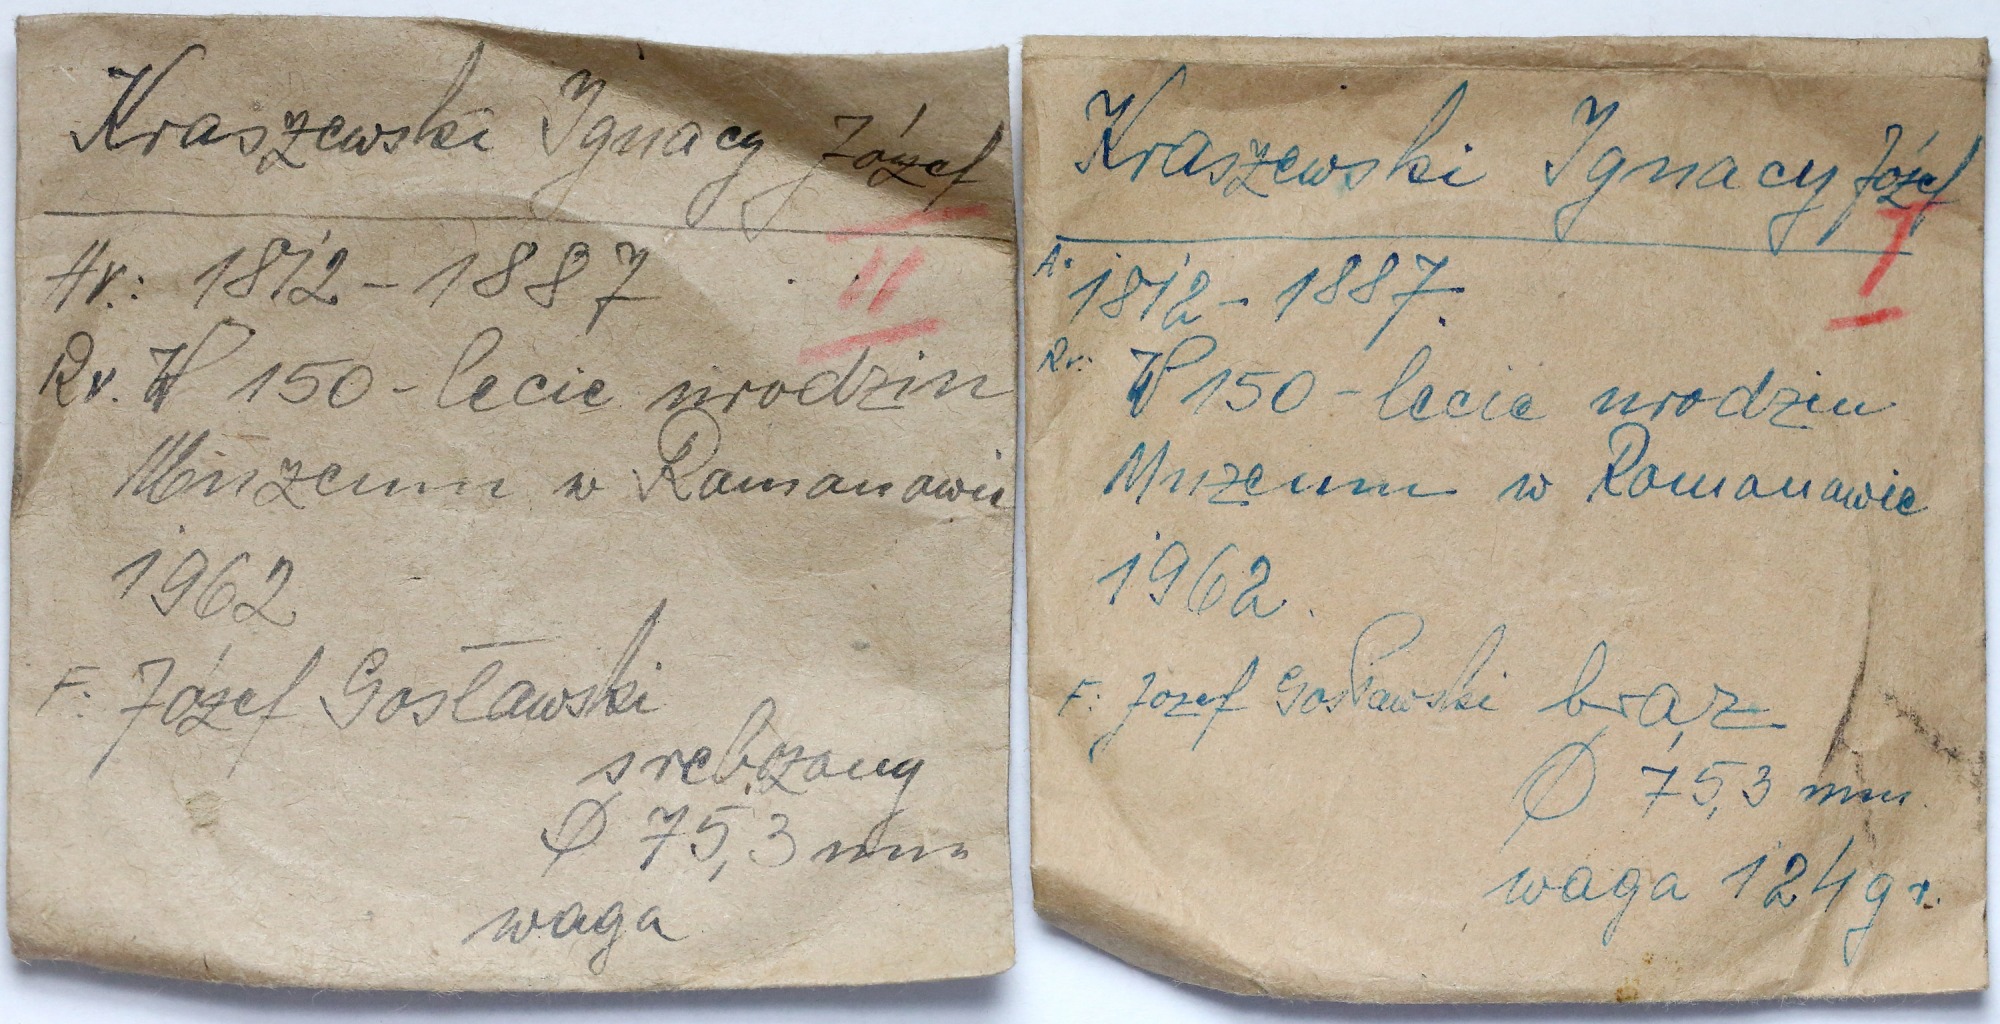 Kraszewski Ignacy Józef
II
Av.: 1812 - 1887
Rv. W 150-lecie urodzin
Muzeum w Romanowie
1962
F: Józef Gosławski
srebrzony
Ø 75,3 mm
waga
Kraszewski Ignacy Józef
I
A. 1812 - 1887.
Rv: W 150-lecie urodzin
Muzeum w Romanowie
1962.
F: Józef Gosławski brąz
Ø 75,3 mm.
waga 124 gr.